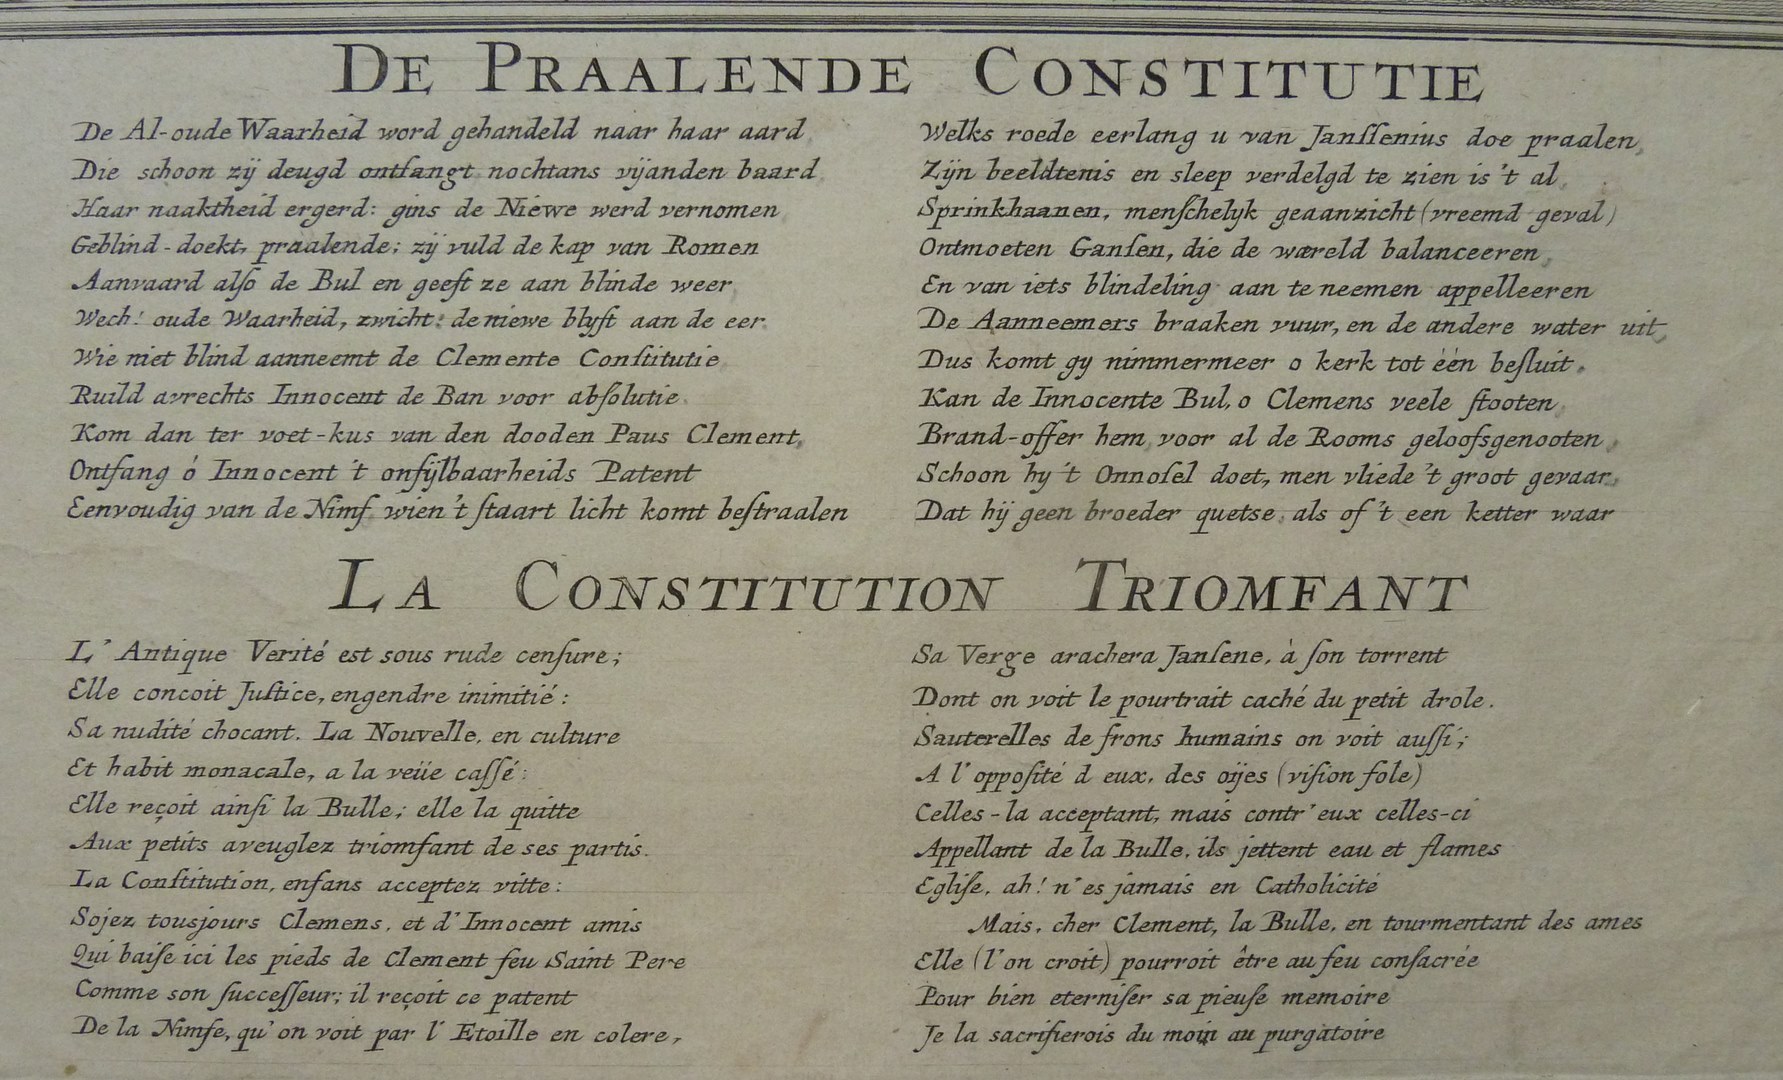 DE PRAALENDE CONSTITUTIE
De Al-oude Waarheid word gehandeld naar haar aard,
Die schoon zÿ deugd ontfangt nochtans vÿanden baard
Haar naaktheid ergerd: gins de Niewe werd vernomen
Geblind-doekt, praalende; zÿ vuld de kap van Romen
Aanvaard alſo de Bul en geeft ze aan blinde weer,
Wech! oude Waarheid, zwicht: de niewe blyft aan de eer.
Wie niet blind aanneemt de Clemente Conſtitutie
Ruild avrechts Innocent de Ban voor abſolutie.
Kom dan ter voet-kus van den dooden Paus Clement,
Ontfang ó Innocent 't onfÿlbaarheids Patent
Eenvoudig van de Nimf, wien 't ſtaart licht komt beſtraalen
Welks roede eerlang u van Janſſenius doe praalen,
Zÿn beeldtenis en sleep verdelgd te zien is 't al,
Sprinkhaanen, menſchelyk geaanzicht (vreemd geval)
Ontmoeten Ganſen, die de wæreld balanceeren,
En van iets blindeling aan te neemen appelleeren
De Aanneemers braaken vuur, en de andere water uit,
Dus komt gy nimmermeer o kerk tot één beſluit.
Kan de Innocente Bul, o Clemens veele ſtooten,
Brand-offer hem voor al de Rooms geloofsgenooten,
Schoon hy 't Onnoſel doet, men vliede 't groot gevaar,
Dat hÿ geen broeder quetse, als of 't een ketter waar
LA CONSTITUTION TRIOMFANT
L' Antique Verité est sous rude cenſure;
Elle concoit Juſtice, engendre inimitié:
Sa nudité chocant. La Nouvelle, en culture
Et habit monacale, a la veüe caſſé:
Elle reçoit ainſi la Bulle; elle la quitte
Aux petits aveuglez triomfant de ses partis.
La Conſtitution, enfans acceptez vitte:
Sojez tousjours Clemens, et d'Innocent amis
Qui baiſe ici les pieds de Clement feu Saint Pere
Comme son ſucceſſeur; il reçoit ce patent
De la Nimfe, qu' on voit par l' Etoille en colere,
Sa Verge arachera Janſene, à ſon torrent
Dont on voit le pourtrait caché du petit drole.
Sauterelles de frons humains on voit auſſi;
A l' oppoſité d eux, des oÿes (viſion fole)
Celles-la acceptant, mais contr' eux celles-ci
Appellant de la Bulle, ils jettent eau et flames
Egliſe, ah! n'es jamais en Catholicité
Mais, cher Clement, la Bulle, en tourmentant des ames
Elle (l'on croit) pourroit être au feu conſacrée
Pour bien eterniſer sa pieuſe memoire
Je la sacrifierois du moin au purgatoire